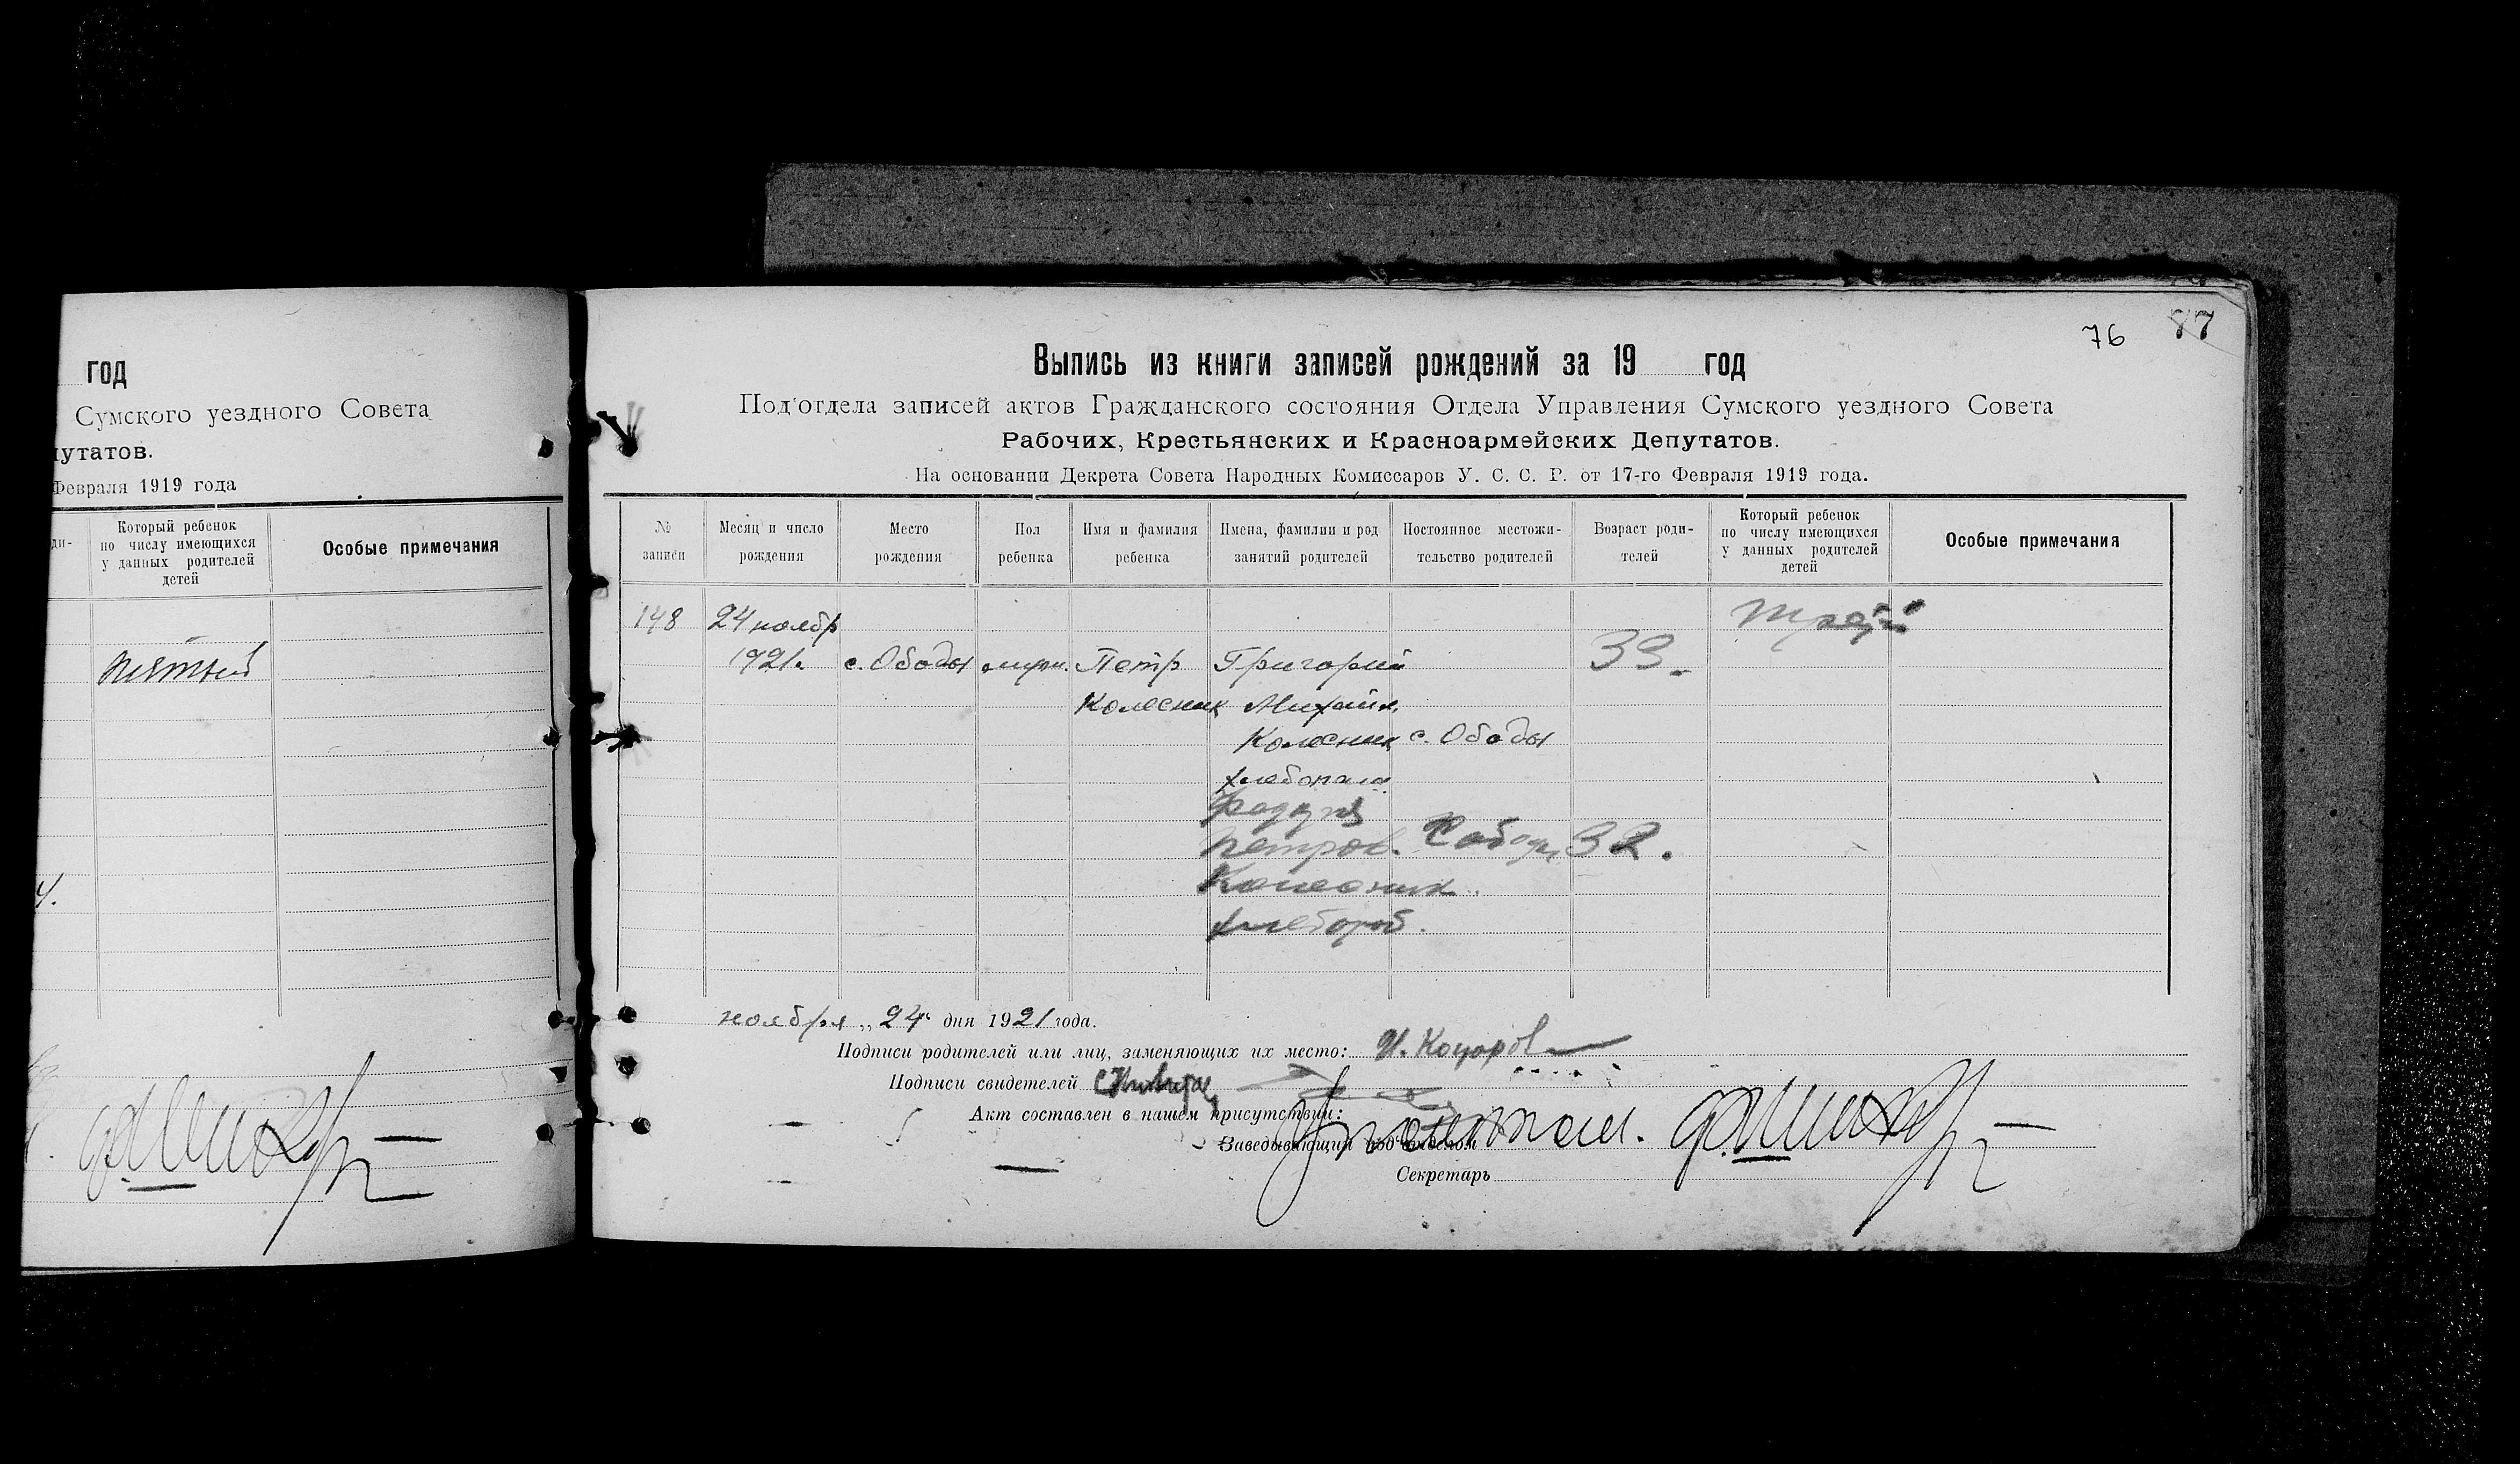 год
Сумского уездного Совета
путатов.
Февраля 1919 года
ди-
Который ребенок
по числу имеющихся
у данных родителей
детей
Особые примечания
пятый
76 87
Выпись из книги записей рождений за 19 год
Под'отдела записей актов Гражданского состояния Отдела Управления Сумского уездного Совета
Рабочих, Крестьянских и Красноармейских Депутатов.
На основании Декрета Совета Народных Комиссаров У. С. С. Р. от 17-го Февраля 1919 года.
№
записи
Месяц и число
рождения
Место
рождения
Пол
ребенка
Имя и фамилия
ребенка
Имена, фамилии и род
занятий родителей
Постоянное местожи-
тельство родителей
Возраст роди-
телей
Который ребенок
по числу имеющихся
у данных родителей
детей
Особые примечания
148 24 ноябр
1921. с. Ободы муж. Петр Григорий 33.
Колесник Михайл.
Колесник с. Ободы
хлебопаш
Петров. с Ободы 32.
Колесник.
хлебороб.
ноября „24" дня 1921 года.
Подписи родителей или лиц, заменяющих их место:
Подписи свидетелей
Акт составлен в нашем присутствии:
Заведывающий под'отделом
Секретарь